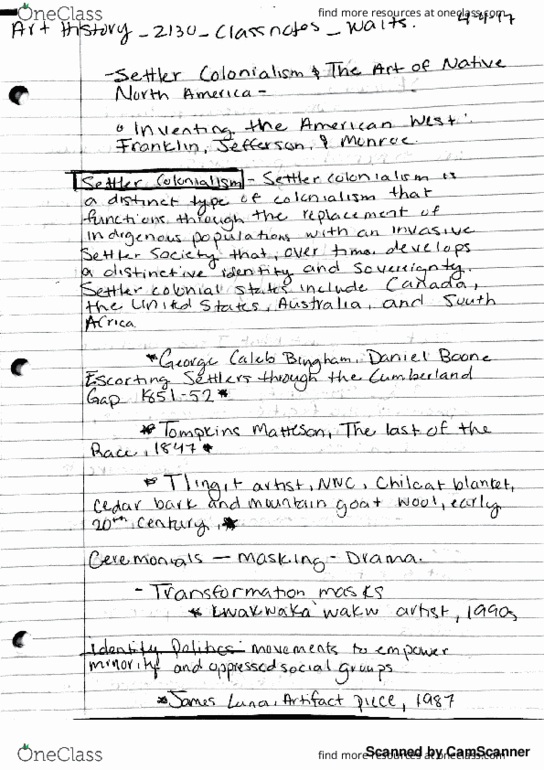 OneClass
find more resources at oneclass.com
Art History - 2130 - Classnotes - Walts.
- Settler Colonialism & The Art of Native
North America -
Inventing the American West:
Franklin, Jefferson, & Monroe.
Settler Colonialism - Settler colonialism is
a distinct type of colonialism that
functions through the replacement of
indigenous populations with an invasive
Settler Society that, over time, develops
a distinctive identity and sovereignty.
Settler colonial states include Canada,
the United States, Australia, and South
Africa
*George Caleb Bingham, Daniel Boone
Escorting Settlers through the Cumberland
Gap 1851-52*
*Tompkins Matteson, The last of the
Race, 1847*
*Tlingit artist, NWC, Chilcat blanket,
cedar bark and mountain goat wool, early
20th century,*
Ceremonials — masking - Drama.
- Transformation masks
* Kwakwaka'wakw artist, 1990s
Identity Politics - movements to empower
minority and oppressed social groups
*James Luna, Artifact piece, 1987
OneClass
find more resources at oneclass.com
Scanned by CamScanner